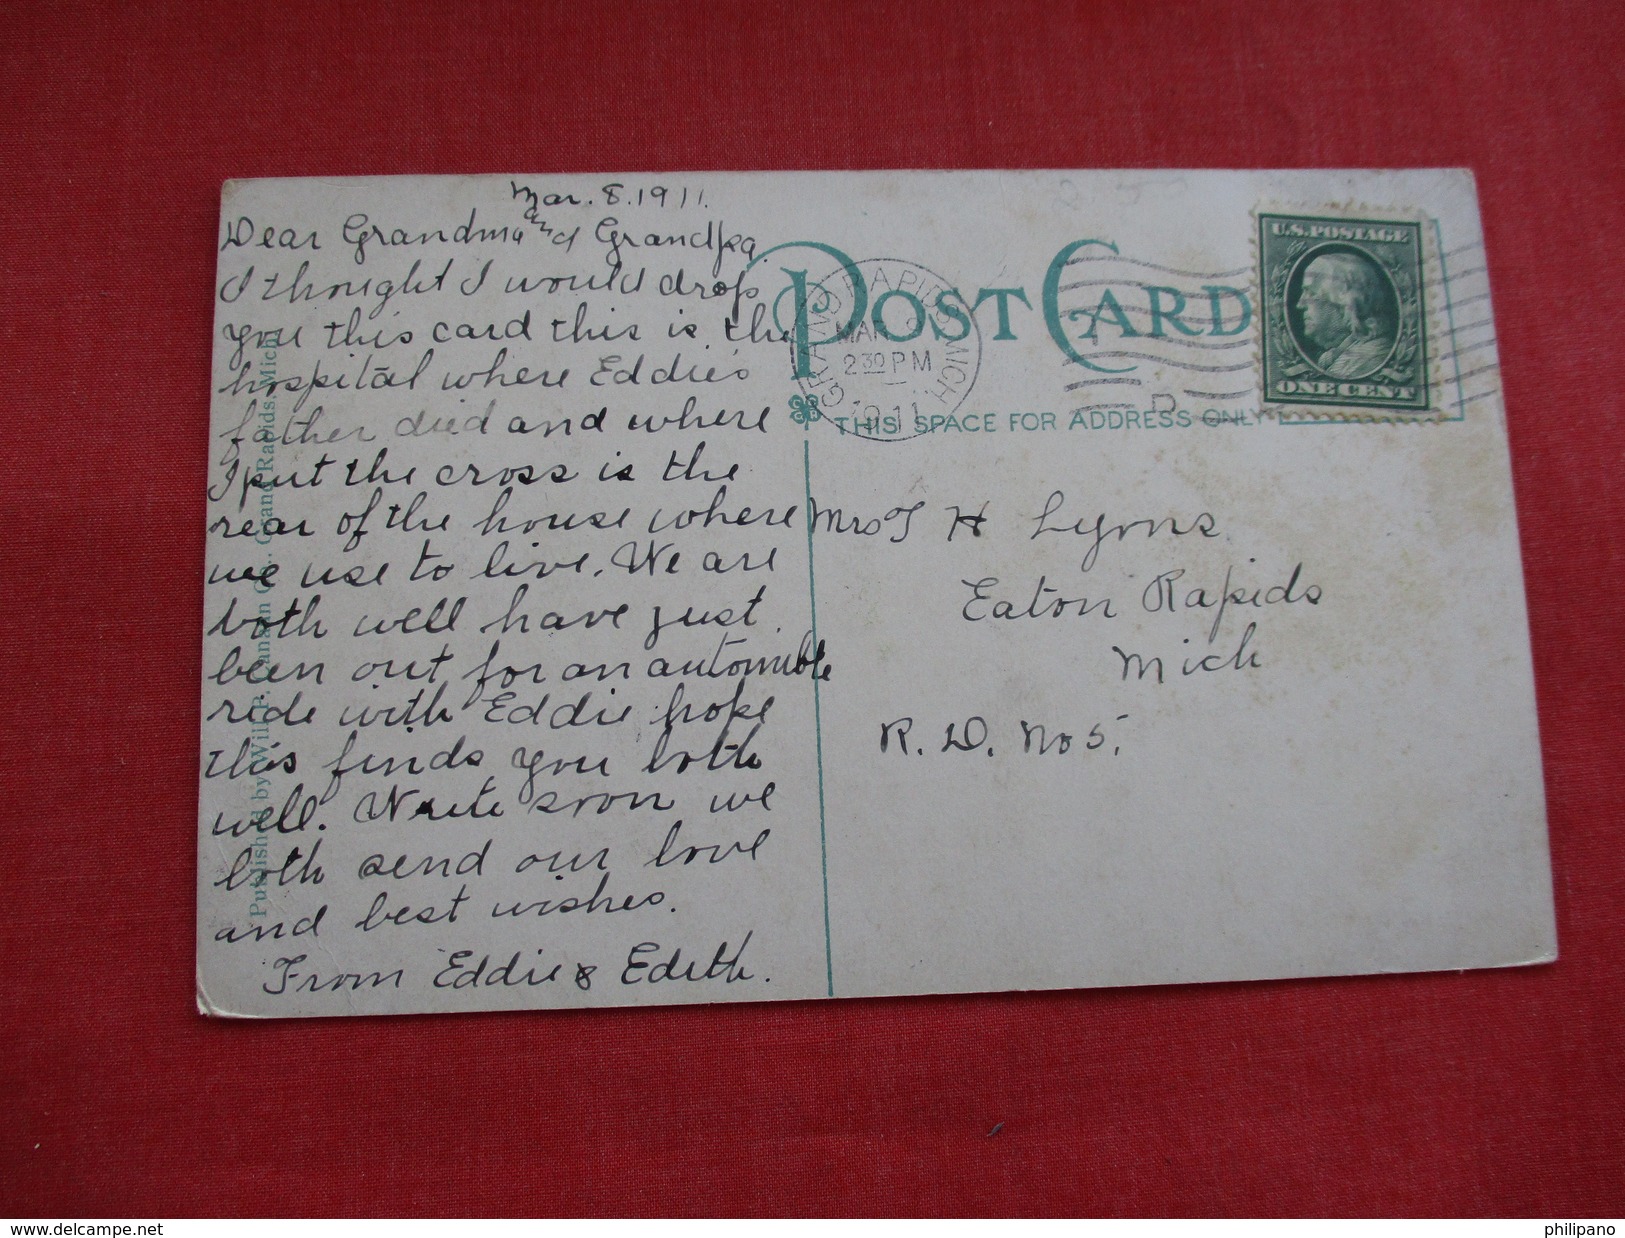 Mar. 8. 1911.
Dear Grandma and Grandpa
I thought I would drop
you this card this is the
hospital where Eddie's
father died and where
I put the cross is the
rear of the house where
we use to live. We are
both well have just
been out for an automoble
ride with Eddie hope
this finds you both
well. Write soon we
both send our love
and best wishes.
From Eddie & Edith.
Published by Will P. Canaan Co., Grand Rapids, Mich.
POST CARD
THIS SPACE FOR ADDRESS ONLY
GRAND RAPIDS MICH
MAR
2 30 PM
1911
D
U.S. POSTAGE
ONE CENT
Mrs T H Lyons
Eaton Rapids
Mich
R. D. No 5.
delcampe.net
philipano